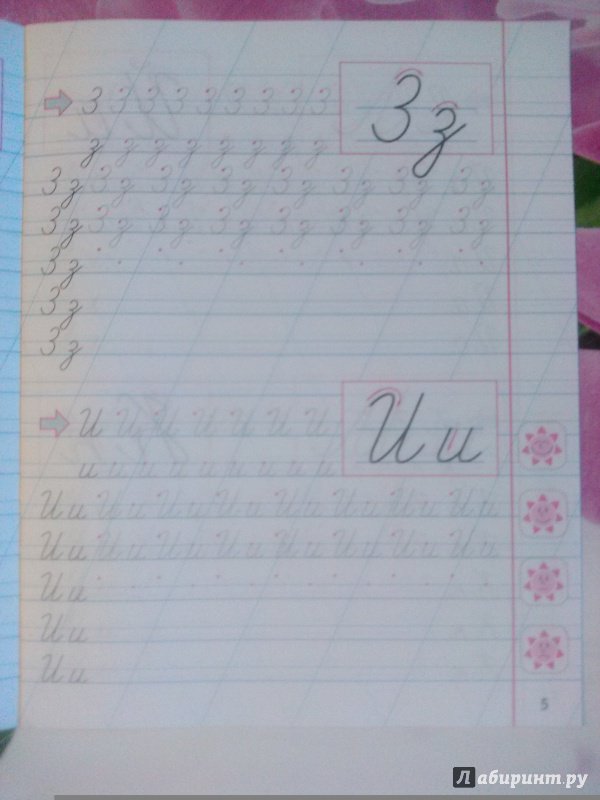 З З З З З З З З З
Зз
з з з з з з з з
Зз Зз Зз Зз Зз Зз Зз Зз
Зз Зз Зз Зз Зз Зз Зз Зз
Зз
Зз
Зз
И И И И И И И
Ии
и и и и и и и и и
Ии Ии Ии Ии Ии Ии Ии Ии
Ии Ии Ии Ии Ии Ии Ии Ии
Ии
Ии
Ии
5
Лабиринт.ру